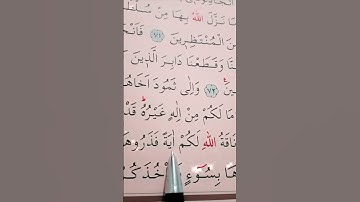 مَا نَزَّلَ اللّٰهُ بِهَا مِنْ سُلْطَا
نَ الْمُنْتَظِر۪ينَ ﴿٧١﴾ فَاَنْجَ
نَّا وَقَطَعْنَا دَابِرَ الَّذ۪ينَ
ينَ ﴿٧٢﴾ وَاِلٰى ثَمُودَ اَخَاهُ
مَا لَكُمْ مِنْ اِلٰهٍ غَيْرُهُ قَدْ
نَاقَةُ اللّٰهِ لَكُمْ اٰيَةً فَذَرُوهَا
هَا بِسُٓوءٍ يَأْخُذَكُمْ